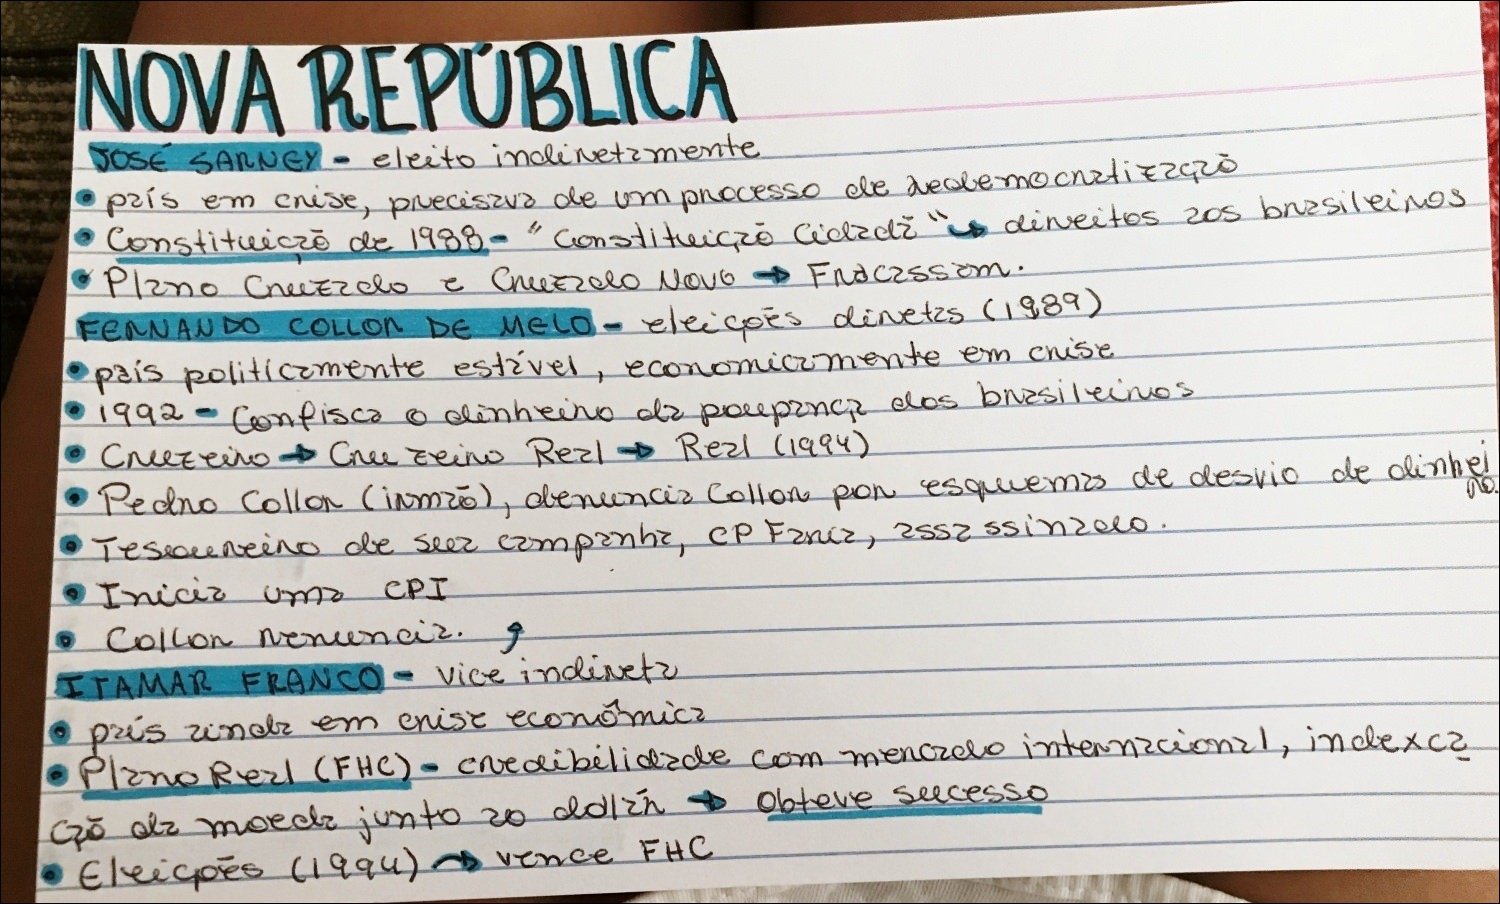 NOVA REPÚBLICA
JOSÉ SARNEY - eleito indiretamente
• país em crise, precisava de um processo de redemocratização
• Constituição de 1988 - "Constituição Cidadã" ↪ direitos aos brasileiros
• Plano Cruzado e Cruzado Novo → Fracassam.
FERNANDO COLLOR DE MELO - eleições diretas (1989)
• país politicamente estável, economicamente em crise
• 1992 - Confisca o dinheiro da poupança dos brasileiros
• Cruzeiro → Cruzeiro Real → Real (1994)
• Pedro Collor (irmão), denuncia Collor por esquemas de desvio de dinhei
ro.
• Tesoureiro de sua campanha, CP Faria, assassinado.
• Inicia uma CPI
• Collor renuncia.
ITAMAR FRANCO - vice indireta
• país ainda em crise econômica
• Plano Real (FHC) - credibilidade com mercado internacional, indexca
ção da moeda junto ao dólar → Obteve sucesso
• Eleições (1994) → vence FHC